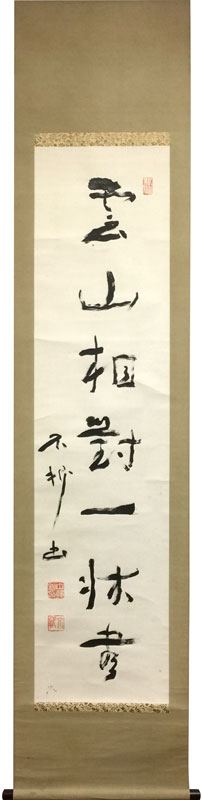 雲山相對一牀書
不抄書